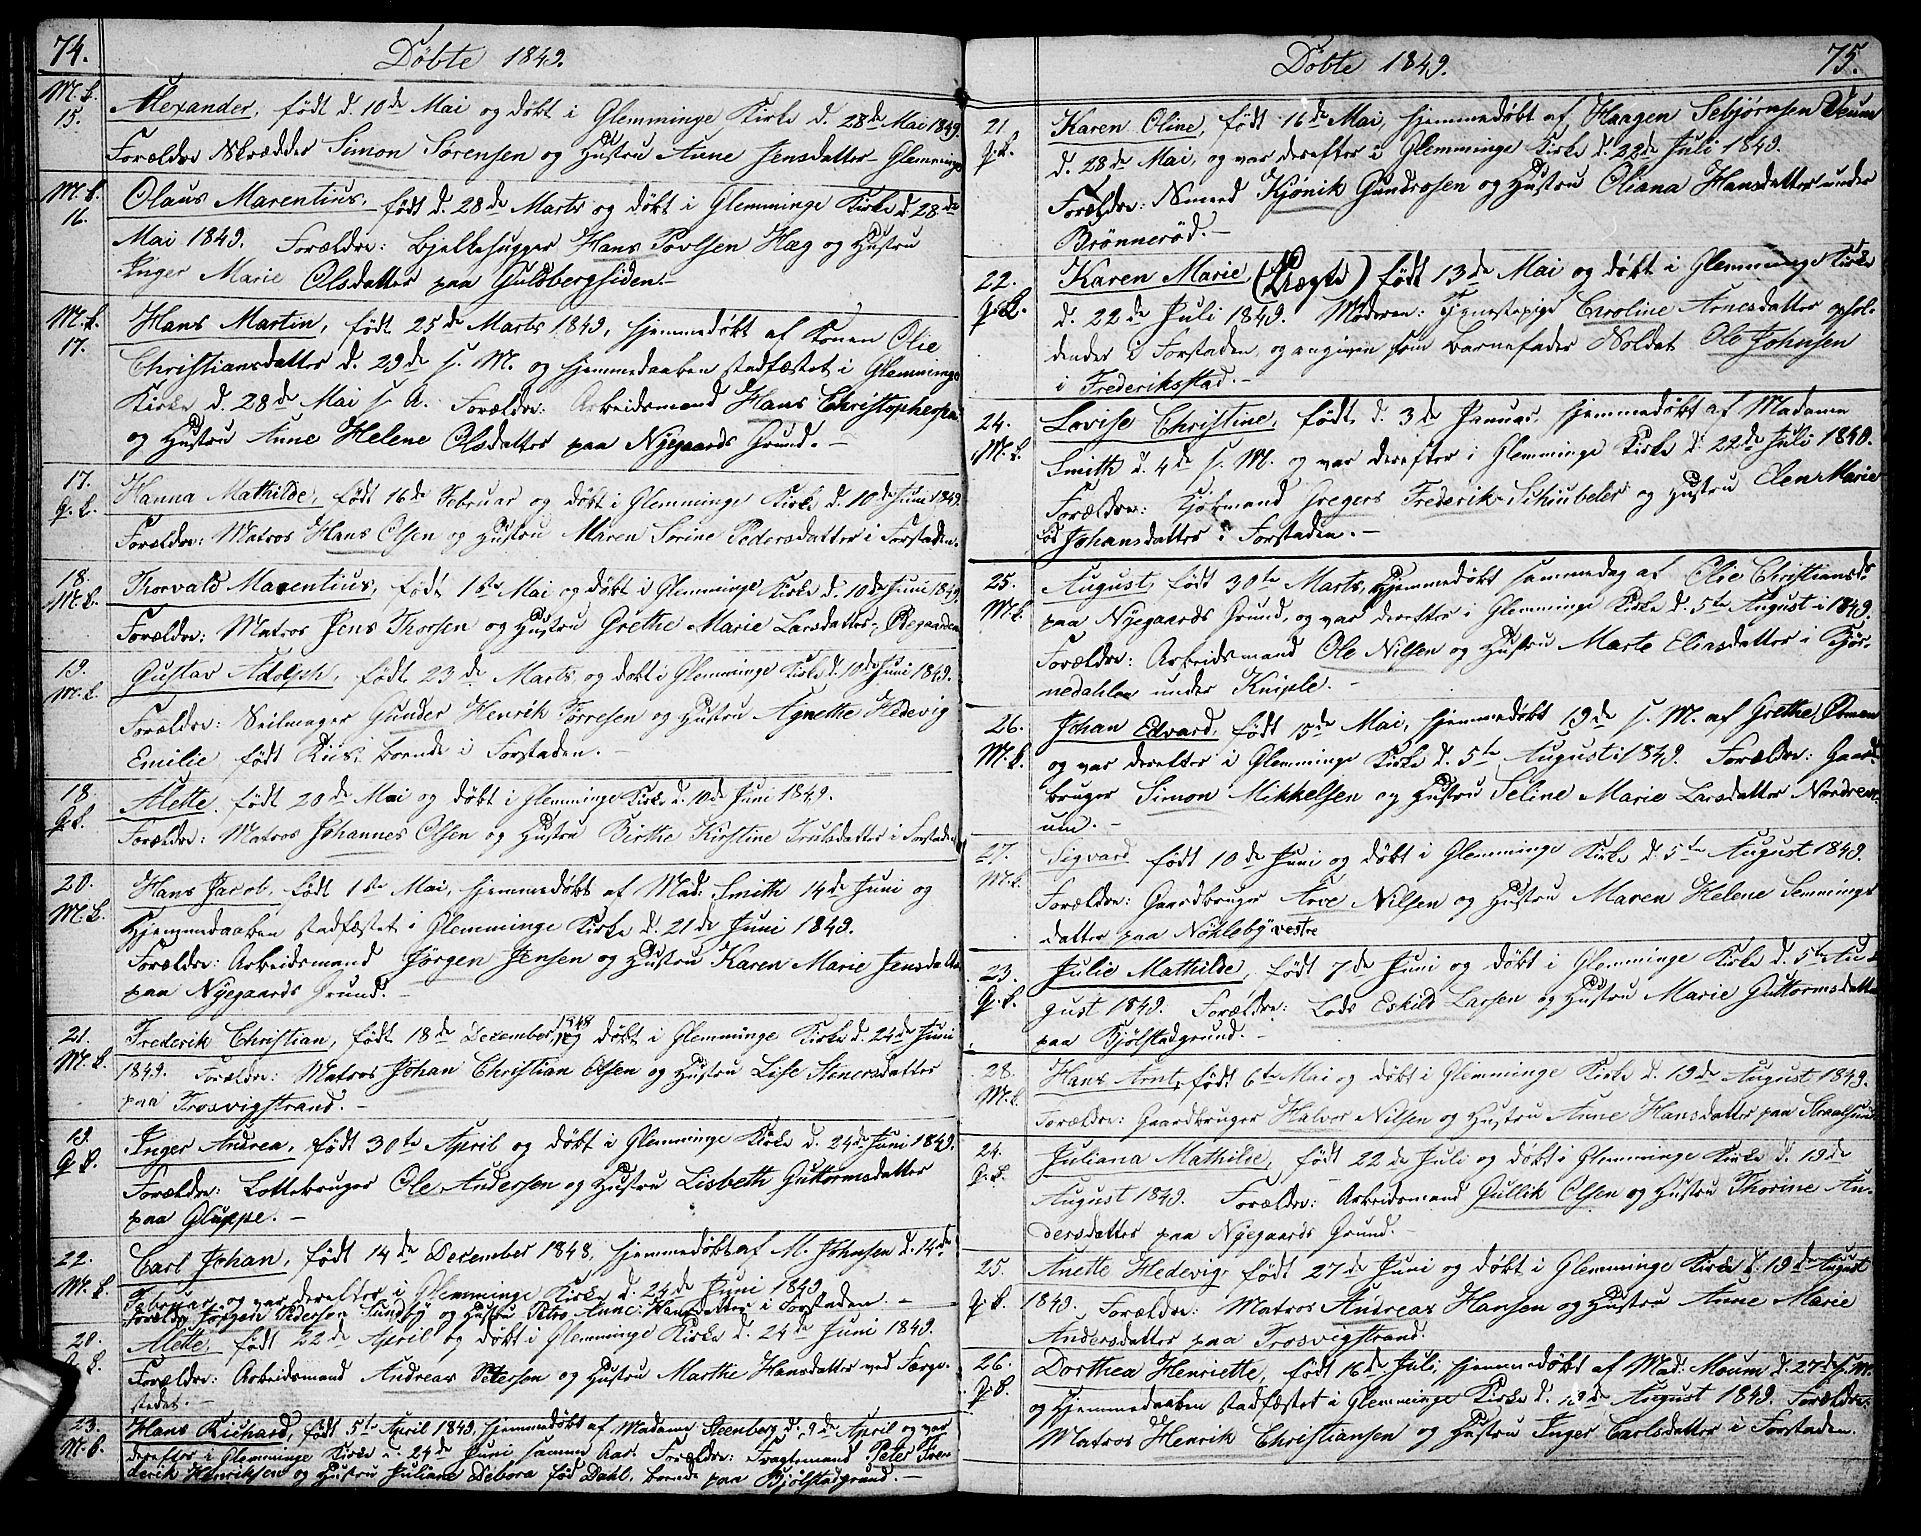 74.
Döbte 1849.
M. k.
15.
Alexander, født d. 10de Mai og døbt i Glemminge Kirke d. 28de Mai 1849.
Forældre Skrædder Simon Sørensen og Hustru Anne Jensdatter Glemminge
M. k.
16.
Olaus Marentius, født d. 28de Marts og døbt i Glemminge Kirke d. 28de
Mai 1849. Forældre: Bjelkehugger Hans Povlsen Hag og Hustru
Inger Marie Olsdatter paa Guldbergsiden.
M. k.
17.
Hans Martin, født 25de Marts 1849, hjemmedøbt af Konen Olie
Christiansdatter d. 29de s. M. og hjemmedaaben stadfæstet i Glemminge
Kirke d. 28de Mai s. A. Forældre: Arbeidsmand Hans Christophersen
og Hustru Anne Helene Olsdatter paa Nyegaards Grund.
17.
q. k.
Hanna Mathilde, født 16de Februar og døbt i Glemminge Kirke d. 10de Juni 1849.
Forældre: Matros Hans Olsen og Hustru Maren Sorine Pedersdatter i Forstaden.
18.
M. k.
Thorvald Marentius, født 1ste Mai og døbt i Glemminge Kirke d. 10de Juni 1849.
Forældre: Matros Jens Thorsen og Hustru Grethe Marie Larsdatter,
19.
M. k.
Gustav Adolph, født 23de Marts, og døbt i Glemminge Kirke d. 10de Juni 1849.
Forældre: Seilmager Gunder Henrik Torresen og Hustru Agnette Hedevig
Emilie født Riis, boende i Forstaden.
18.
q. k.
Alette, født 20de Mai og døbt i Glemminge Kirke d. 10de Juni 1849.
Forældre: Matros Johannes Olsen og Hustru Birthe Kirstine Trulsdatter i Forstaden
20.
M. k.
Hans Jacob, født 1ste Mai, hjemmedøbt af Mad. Smith 14de Juni og
Hjemmedaaben stadfæstet i Glemminge Kirke d. 21de Juni 1849.
Forældre: Arbeidsmand Jørgen Jensen og Hustru Karen Marie Jensdatter
paa Nyegaards Grund.
21.
M. k.
Frederik Christian, født 18de December 1848 og døbt i Glemminge Kirke d. 24de Juni
1849. Forældre: Matros Johan Christian Olsen og Hustru Lise Stenersdatter
paa Trosvigstrand.
19.
q. k.
Inger Andrea, født 30te April og døbt i Glemminge Kirke d. 24de Juni 1849.
Forældre: Lottebruger Ole Andersen og Hustru Lisbeth Guttormsdatter
paa Gluppe.
22.
M. k.
Carl Johan, født 14de December 1848, hjemmedøbt af M. Johnsen d. 14de
Februar, og var derefter i Glemminge Kirke d. 24de Juni 1849.
Forældre Jørgen Pedersen Sundby og Hustru Petro Anne Hansdatter i Forstaden
20.
q. k.
Alette, født 22de April og døbt i Glemminge Kirke d. 24de Juni 1849.
Forældre: Arbeidsmand Andreas Petersen og Hustru Marthe Hansdatter ved Færge-
stedet.
23.
M. k.
Hans Richard, født 5te April 1849, hjemmedøbt af Madame Steenberg d. 9de April og var
derefter i Glemminge Kirke d. 24de Juni samme Aar. Forældre: Fragtemand Peter Fre-
derik Henriksen og Hustru Juliane Debora født Dahl, boende paa Kjølstadgrund.
75.
Döbte 1849.
21.
q. k.
Karen Oline, født 16de Mai, hjemmedøbt af Haagen Sebjørnsen Veum
d. 28de Mai, og var derefter i Glemminge Kirke d. 22de Juli 1849.
Forældre: Smed Kjønik Gundrosen og Hustru Oliana Hansdatter under
Brönneröd.
22.
q. k.
Karen Marie (Uægte) født 13de Mai og døbt i Glemminge Kirke
d. 22de Juli 1849. Moderen: Tjenestepige Caroline Arnesdatter ophol-
dende i Forstaden, og angiven som Barnefader Soldat Ole Johnsen
i Frederiksstad.
24.
M. k.
Lovise Christine, født d. 3de Januar, hjemmedøbt af Madame
Smith d. 4de s. M. og var derefter i Glemminge Kirke d. 22de Juli 1849.
Forældre: Kjøbmand Gregers Frederik Schiubeler og Hustru Elen Marie
Johansdatter i Forstaden.
25.
M. k.
August, født 30te Marts, hjemmedøbt sammedag af Olie Christiansd.
paa Nyegaards Grund, og var derefter i Glemminge Kirke d. 5te August i 1849.
Forældre: Arbeidsmand Ole Nilsen og Hustru Marte Eliasdatter i Bjør-
nedahlen under Kniple.
26.
M. k.
Johan Edvard, født 15de Mai, hjemmedøbt 19de s. M. af Grethe Omen
og var derefter i Glemminge Kirke d. 5te August 1849. Forældre: Gaard
bruger Simon Mikkelsen og Hustru Seline Marie Larsdatter Nordreve-
um.
27.
M. k.
Sigvard, født 10de Juni og døbt i Glemminge Kirke d. 5te August 1849.
Forældre: Gaardbruger Arve Nilsen og Hustru Maren Helene Semmings
datter paa Nökleby vestre
23.
q. k.
Julie Mathilde, født 7de Juni og døbt i Glemminge Kirke d. 5te Au
gust 1849. Forældre: Lods Eskild Larsen og Hustru Marie Guttormsdatter
paa Kjölstadgrund.
28.
M. k.
Hans Arnt, født 6te Mai og døbt i Glemminge Kirke d. 19de August 1849.
Forældre: Gaardbruger Halvor Nilsen og Hustru Anne Hansdatter paa Straalsund
24.
q. k.
Juliana Mathilde, født 22de Juli og døbt i Glemminge Kirke d. 19de
August 1849. Forældre: Arbeidsmand Gullik Olsen og Hustru Thorine An-
dersdatter paa Nyegaards Grund.
25.
q. k.
Anette Hedevig, født 27de Juni og døbt i Glemminge Kirke d. 19de August
1849. Forældre: Matros Andreas Hansen og Hustru Anne Marie
Andersdatter paa Trosvigstrand.
26.
q. k.
Dorthea Henriette, født 16de Juli, hjemmedøbt af Mad. Moum d. 27de s. M.
og Hjemmedaaben stadfæstet i Glemminge Kirke d. 19de August 1849. Forældre:
Matros Henrik Christiansen og Hustru Inger Carlsdatter i Forstaden.